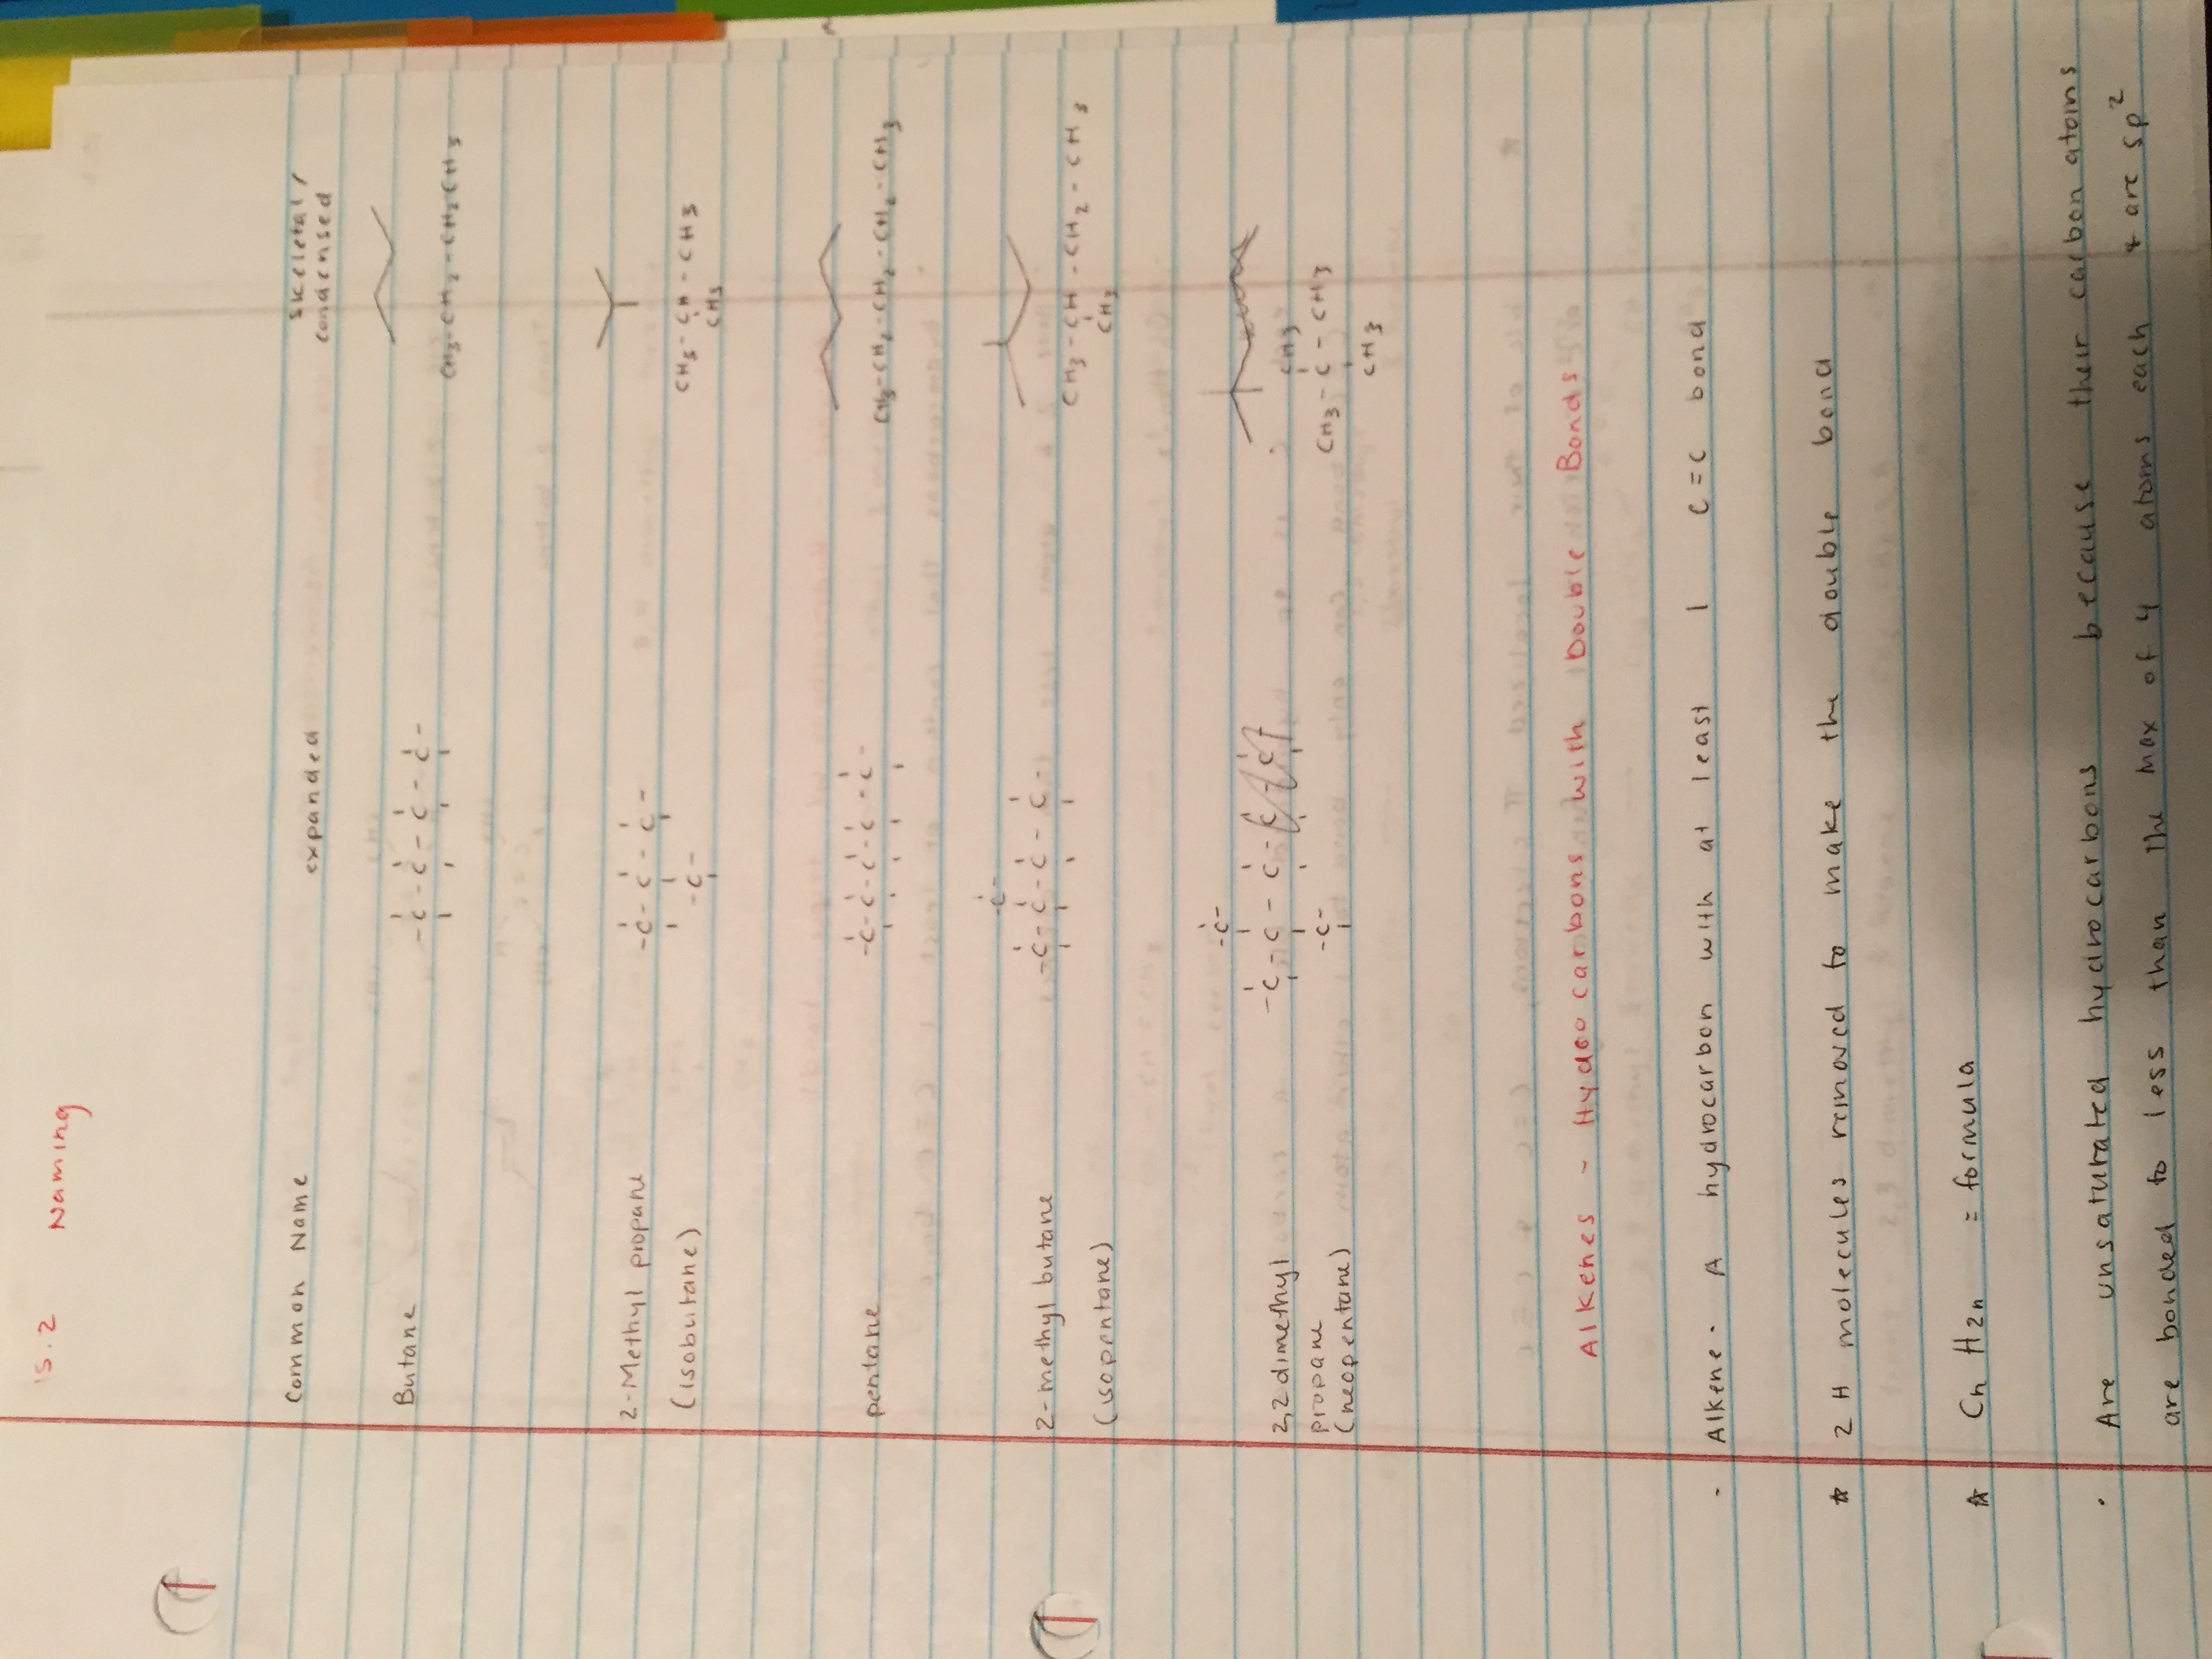 15.2 Naming
Common Name expanded skeletal/
condensed
Butane -C-C-C-C-
CH3-CH2-CH2CH3
2-Methyl propane -C-C-C-
(isobutane) -C- CH3-CH-CH3
CH3
pentane -C-C-C-C-C-
CH3-CH2-CH2-CH2-CH3
-C-
2-methyl butane -C-C-C-C-
CH3-CH-CH2-CH3
(isopentane) CH3
-C-
2,2 dimethyl -C-C-C- CH3
propane -C- CH3-C-CH3
(neopentane) CH3
Alkenes - Hydrocarbons with Double Bonds
- Alkene. A hydrocarbon with at least 1 C=C bond
* 2 H molecules removed to make the double bond
* Cn H2n = formula
. Are unsaturated hydrocarbons because their carbon atoms
are bonded to less than the max of 4 atoms each & are sp2